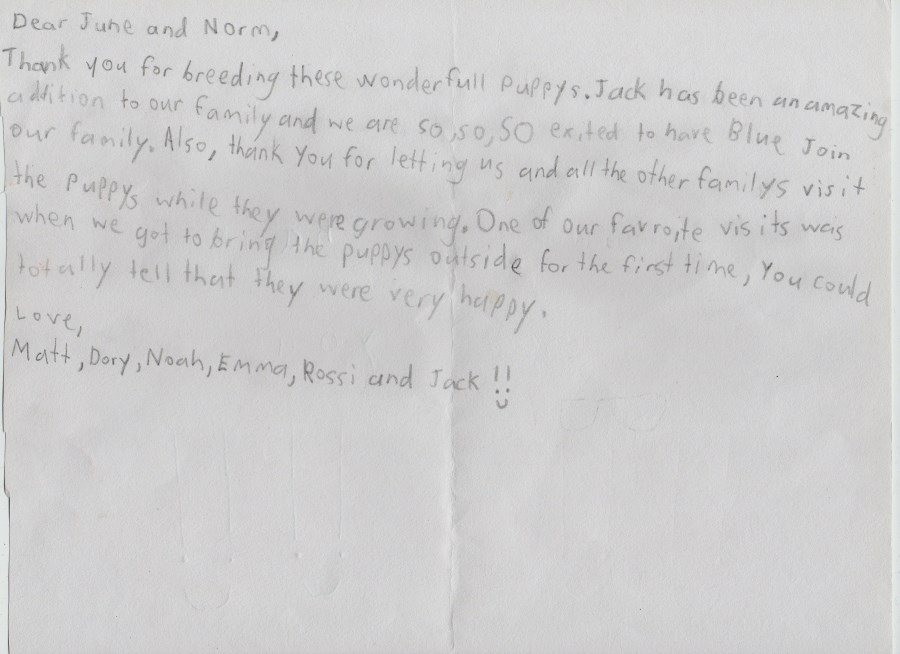 Dear June and Norm,
Thank you for breeding these wonderfull puppys. Jack has been an amazing
addition to our family and we are so, so, SO exited to have Blue Join
our family. Also, thank you for letting us and all the other familys visit
the puppys while they were growing. One of our favroite visits was
when we got to bring the puppys outside for the first time, You could
totally tell that they were very happy.
Love,
Matt, Dory, Noah, Emma, Rossi and Jack !!